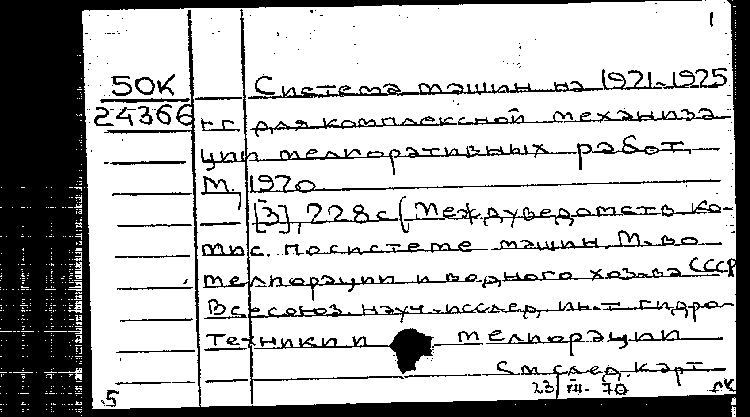 1
50К Система машин на 1971-1975
24366 гг. для комплексной механиза-
ции мелиоративных работ.
М., 1970
[3], 228 с (Междуведомств. ко-
мис. по системе машин. М-во
мелиорации и водного хоз-ва СССР
Всесоюз. науч.-исслед. ин-т гидро-
техники и мелиорации
См след. карт
23/III-70 лк
5